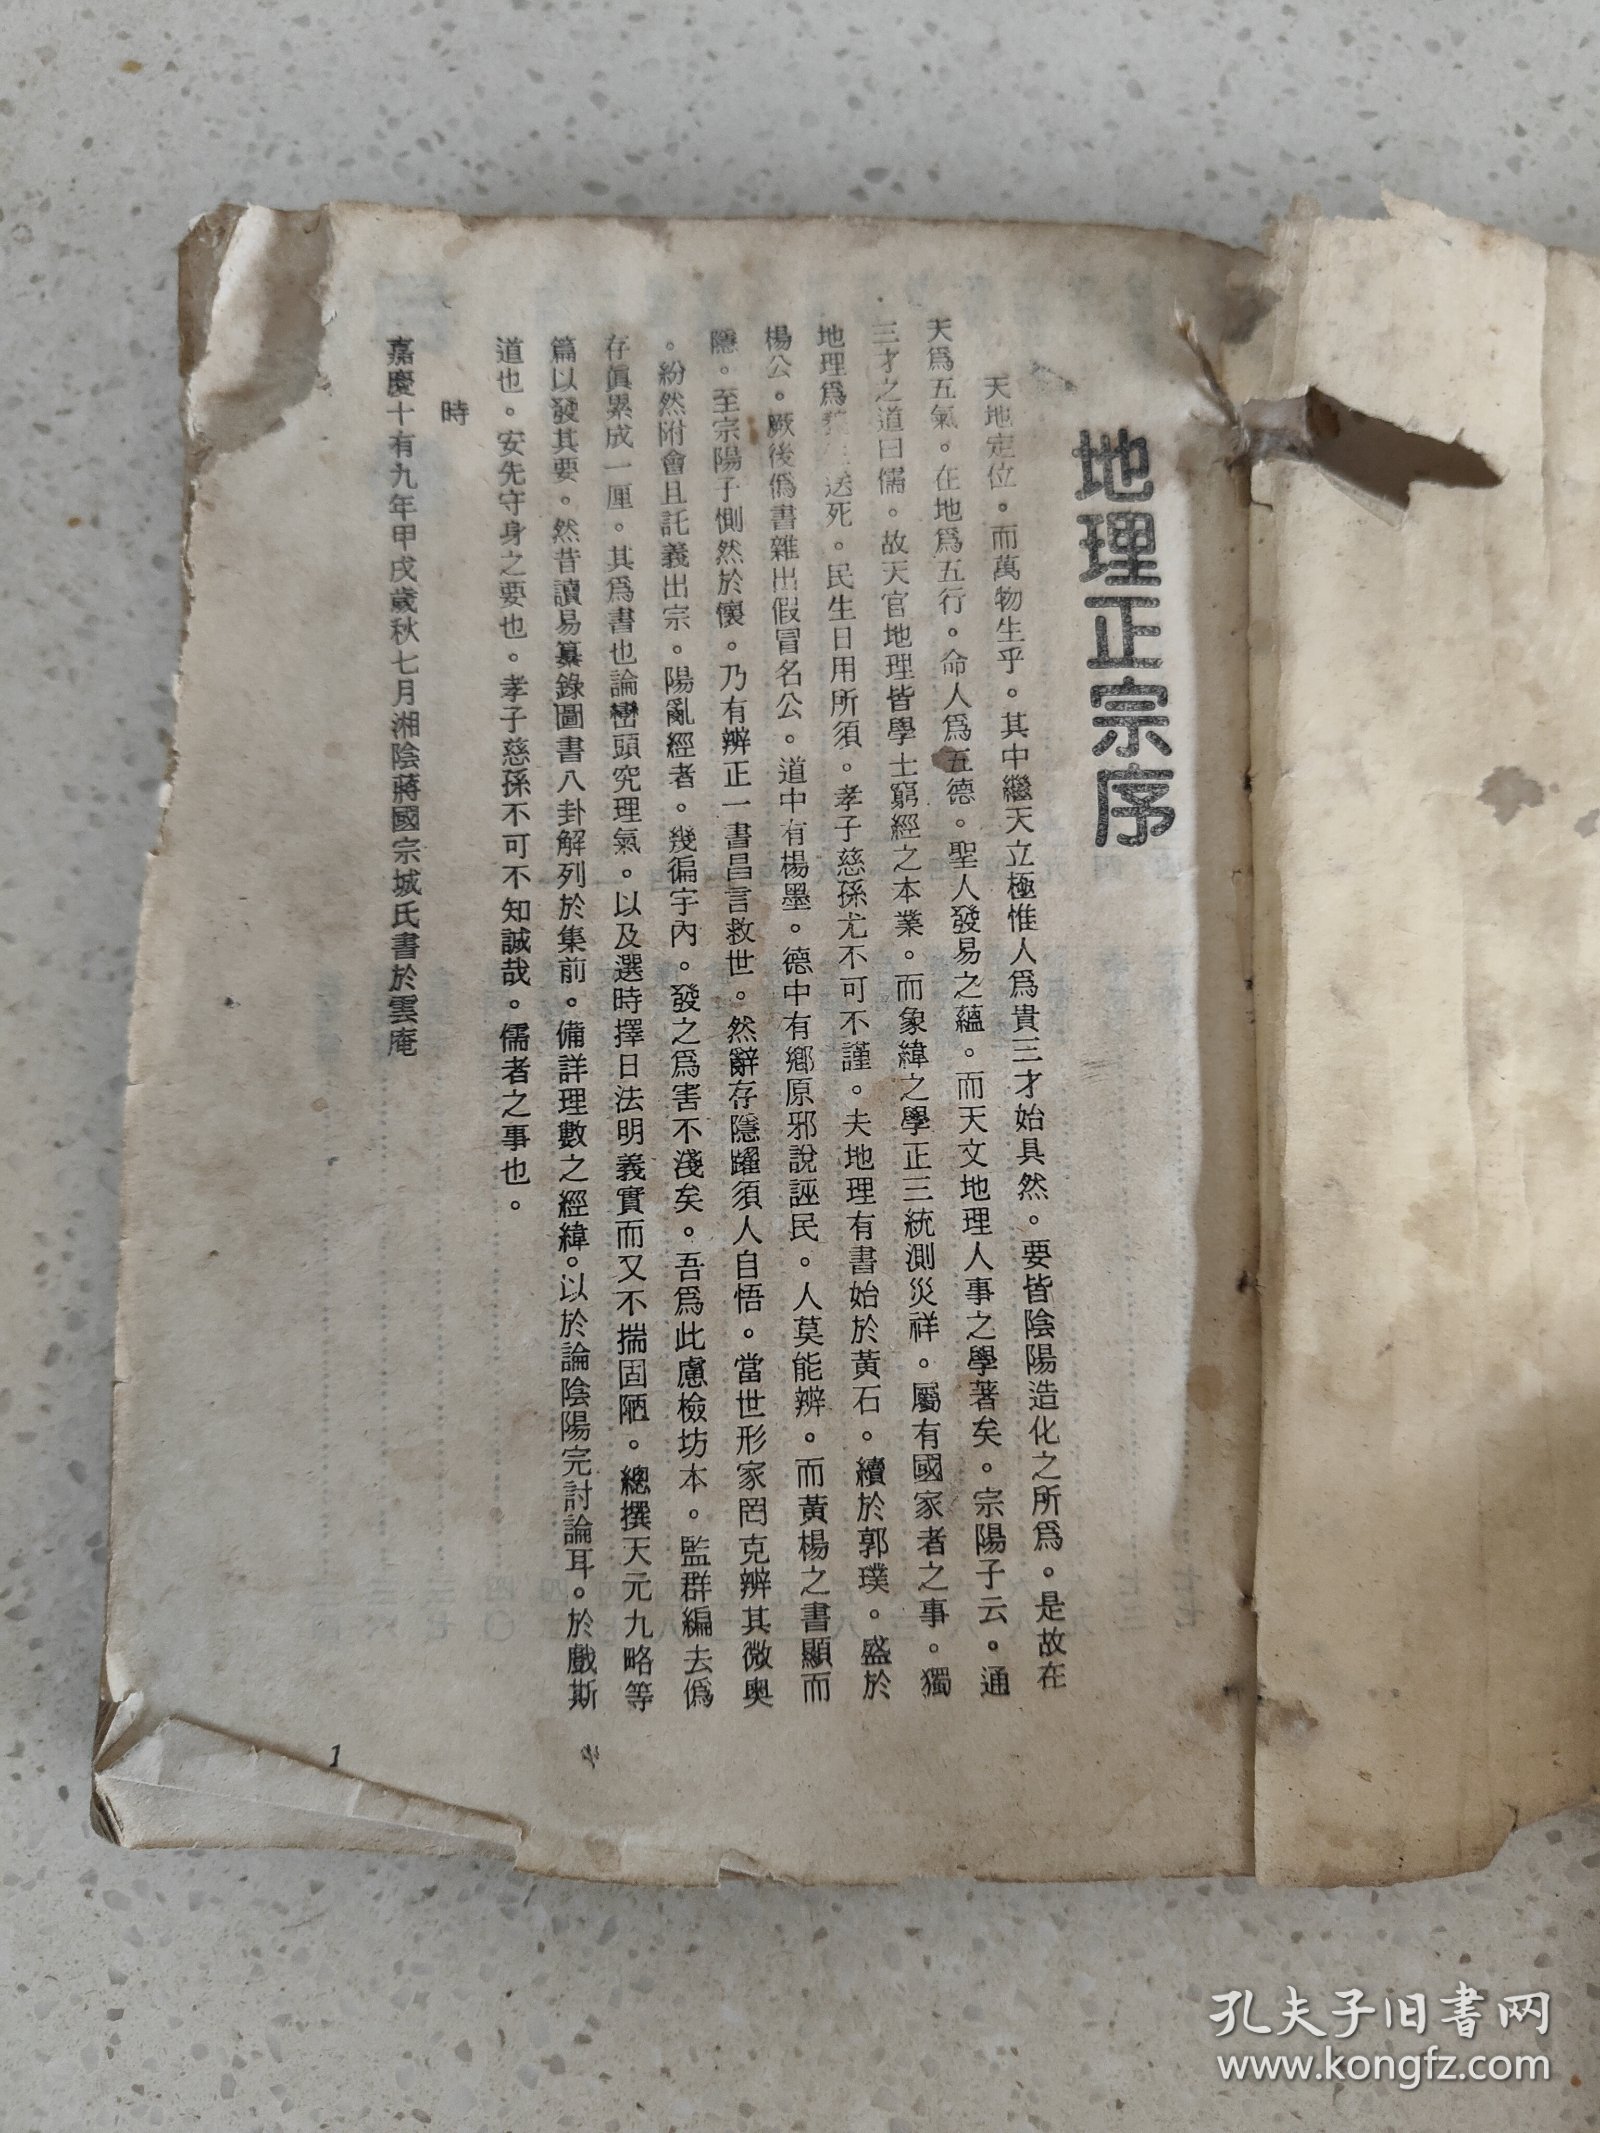 地理正宗序
天地定位。而萬物生乎。其中繼天立極惟人爲貴三才始具然。要皆陰陽造化之所爲。是故在
天爲五氣。在地爲五行。命人爲五德。聖人發易之蘊。而天文地理人事之學著矣。宗陽子云。通
三才之道曰儒。故天官地理皆學士窮經之本業。而象緯之學正三統測災祥。屬有國家者之事。獨
地理爲送死。民生日用所須。孝子慈孫尤不可不謹。夫地理有書始於黃石。續於郭璞。盛於
楊公。厥後僞書雜出假冒名公。道中有楊墨。德中有鄉原邪說誣民。人莫能辨。而黃楊之書顯而
隱。至宗陽子惻然於懷。乃有辨正一書昌言救世。然辭存隱躍須人自悟。當世形家罔克辨其微奧
。紛然附會且託義出宗。陽亂經者。幾徧宇內。發之爲害不淺矣。吾爲此慮檢坊本。監群編去僞
存眞累成一厘。其爲書也論巒頭究理氣。以及選時擇日法明義實而又不揣固陋。總撰天元九略等
篇以發其要。然昔讀易纂錄圖書八卦解列於集前。備詳理數之經緯。以於論陰陽完討論耳。於戲斯
道也。安先守身之要也。孝子慈孫不可不知誠哉。儒者之事也。
時
嘉慶十有九年甲戌歲秋七月湘陰蔣國宗城氏書於雲庵
1
孔夫子旧书网
www.kongfz.com